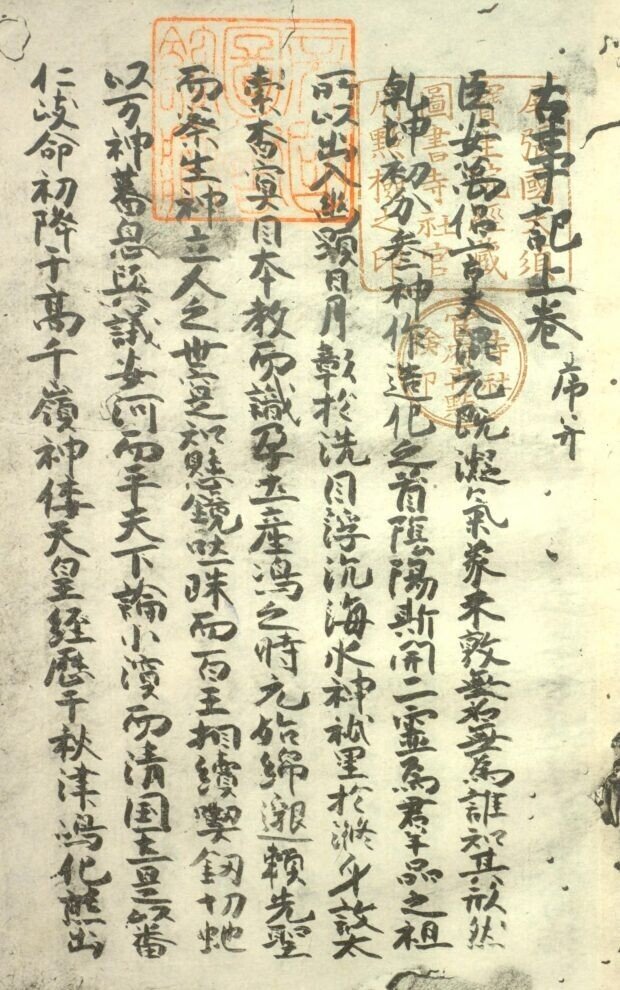 古事記上卷 序并
臣安萬侶言夫混元既凝氣象未敦無名無為誰知其形然
乾坤初分叄神作造化之首陰陽斯開二霊為群品之祖
所以出入幽顯日月彰於洗目浮沉海水神祇呈於滌身故太
素杳冥因本教而識孕土產嶋之時元始綿邈頼先聖
而察生神立人之世寔知懸鏡吐珠而百王相續喫釼切虵
以万神蕃息與議安河而平天下論小濱而清国土是以番
仁岐命初降于高千嶺神倭天皇経歷于秋津嶋化熊出
尾張國大須
寶生院經藏
圖書寺社官
府點檢之印